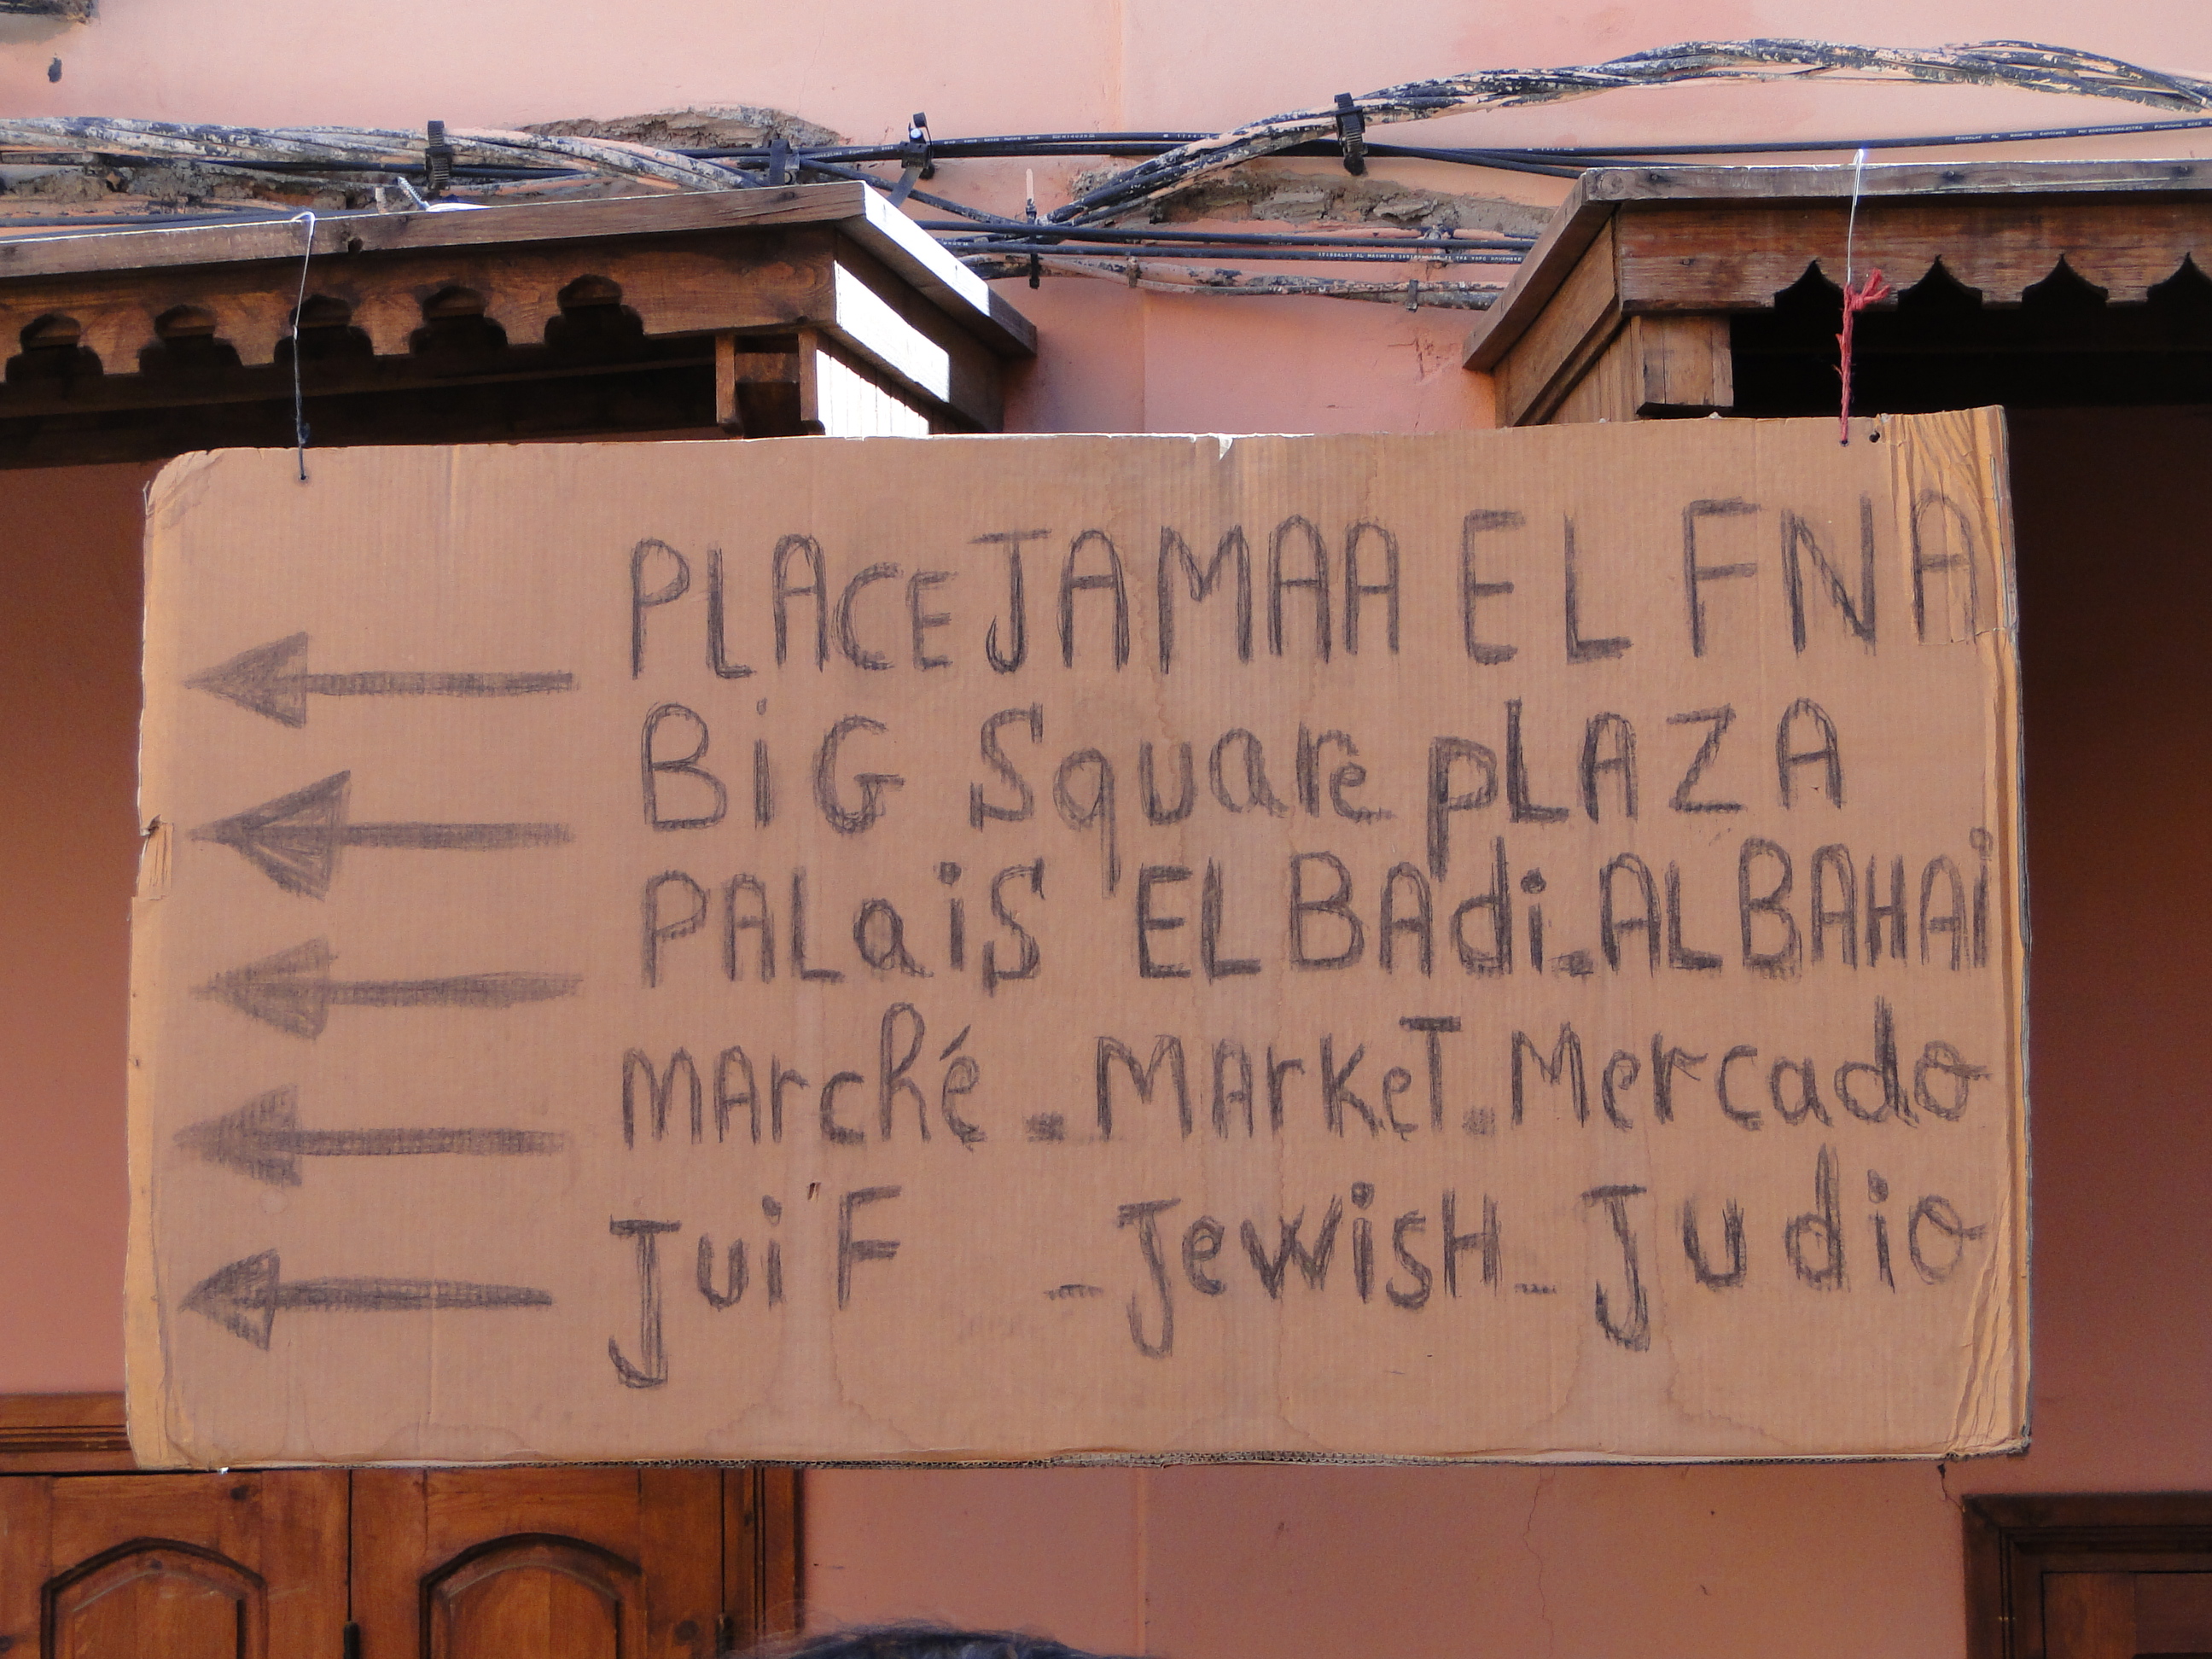 PLACE JAMAA EL FNA
BiG Square pLAZA
PALaiS EL BAdi. AL BAHAi
MArché - MArkeT. Mercado
JuiF - JewisH - Judio